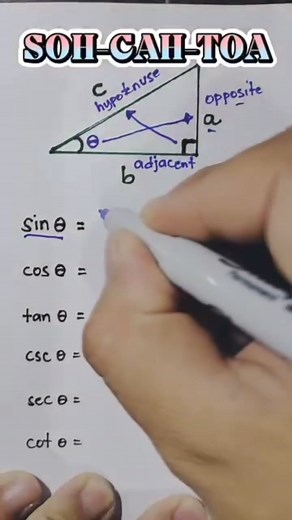 SOH-CAH-TOA
c
hypotenuse
opposite
a
θ
adjacent
b
sin θ =
cos θ =
tan θ =
csc θ =
sec θ =
cot θ =